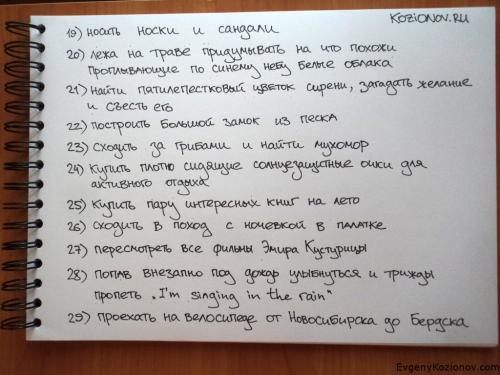 KOZIONOV.RU
19) носить носки и сандали
20) лёжа на траве придумывать на что похожи
проплывающие по синему небу белые облака
21) найти пятилепестковый цветок сирени, загадать желание
и съесть его
22) построить большой замок из песка
23) сходить за грибами и найти мухомор
24) купить плотно сидящие солнцезащитные очки для
активного отдыха
25) купить пару интересных книг на лето
26) сходить в поход с ночевкой в палатке
27) пересмотреть все фильмы Эмира Кустурицы
28) попав внезапно под дождь улыбнуться и трижды
пропеть „I'm singing in the rain"
29) проехать на велосипеде от Новосибирска до Бердска
EvgenyKozionov.com